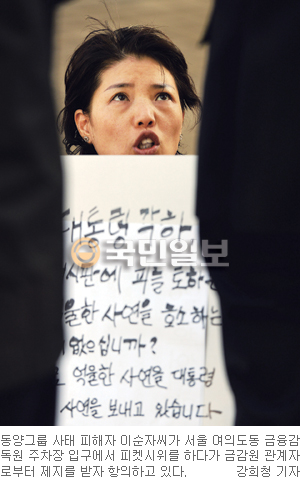 대통령각하
국민일보
시판에 피를 토하는
울한 사연을 호소하는
없으십니까?
억울한 사연을 대통령
사연을 보내고 왔습니다
동양그룹 사태 피해자 이순자씨가 서울 여의도동 금융감
독원 주차장 입구에서 피켓시위를 하다가 금감원 관계자
로부터 제지를 받자 항의하고 있다. 강희청 기자